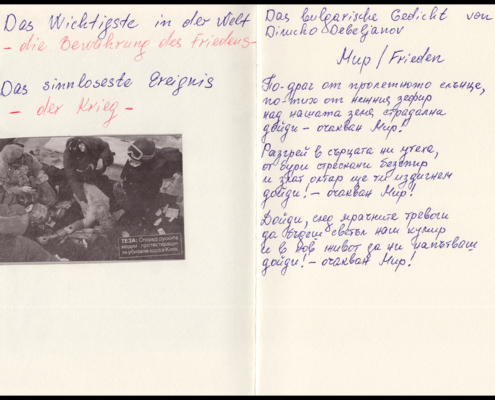 Das Wichtigste in der Welt
- die Bewahrung des Friedens -
Das sinnloseste Ereignis
- der Krieg -
ТЕЗА: Според руските
медии протестиращи
са убивали хора в Киев.
Das bulgarische Gedicht von
Dimcho Debeljanov
Мир / Frieden
По-драг от пролетното слънце,
по-тих от нежния зефир
над нашата земя страдална
дойди - очакван Мир!
Разгрей в сърцата ни утеха,
от бури стреснани безспир
и злат олтар ще ти издигнем
дойди! - очакван Мир!
Дойди, след мрачните тревоги
да бъдеш светъл наш кумир
и в нов живот да ни напътваш
дойди! - очакван Мир!